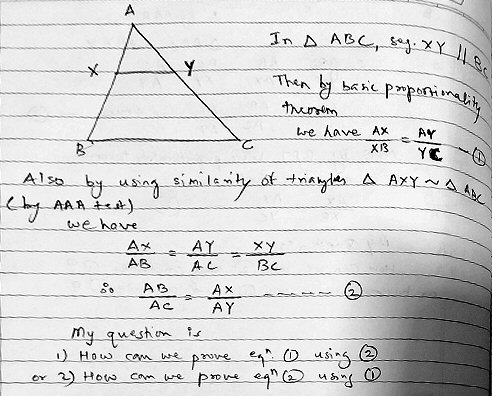 A
X
Y
B
C
In Δ ABC, seg. XY || BC
Then by basic proportionality
theorem
we have AX/XB = AY/YC — ①
Also by using similarity of triangles Δ AXY ~ Δ ABC
(by AAA test)
we have
AX/AB = AY/AC = XY/BC
so AB/AC = AX/AY ----- ②
My question is
1) How can we prove eqⁿ. ① using ②
or 2) How can we prove eqⁿ ② using ①